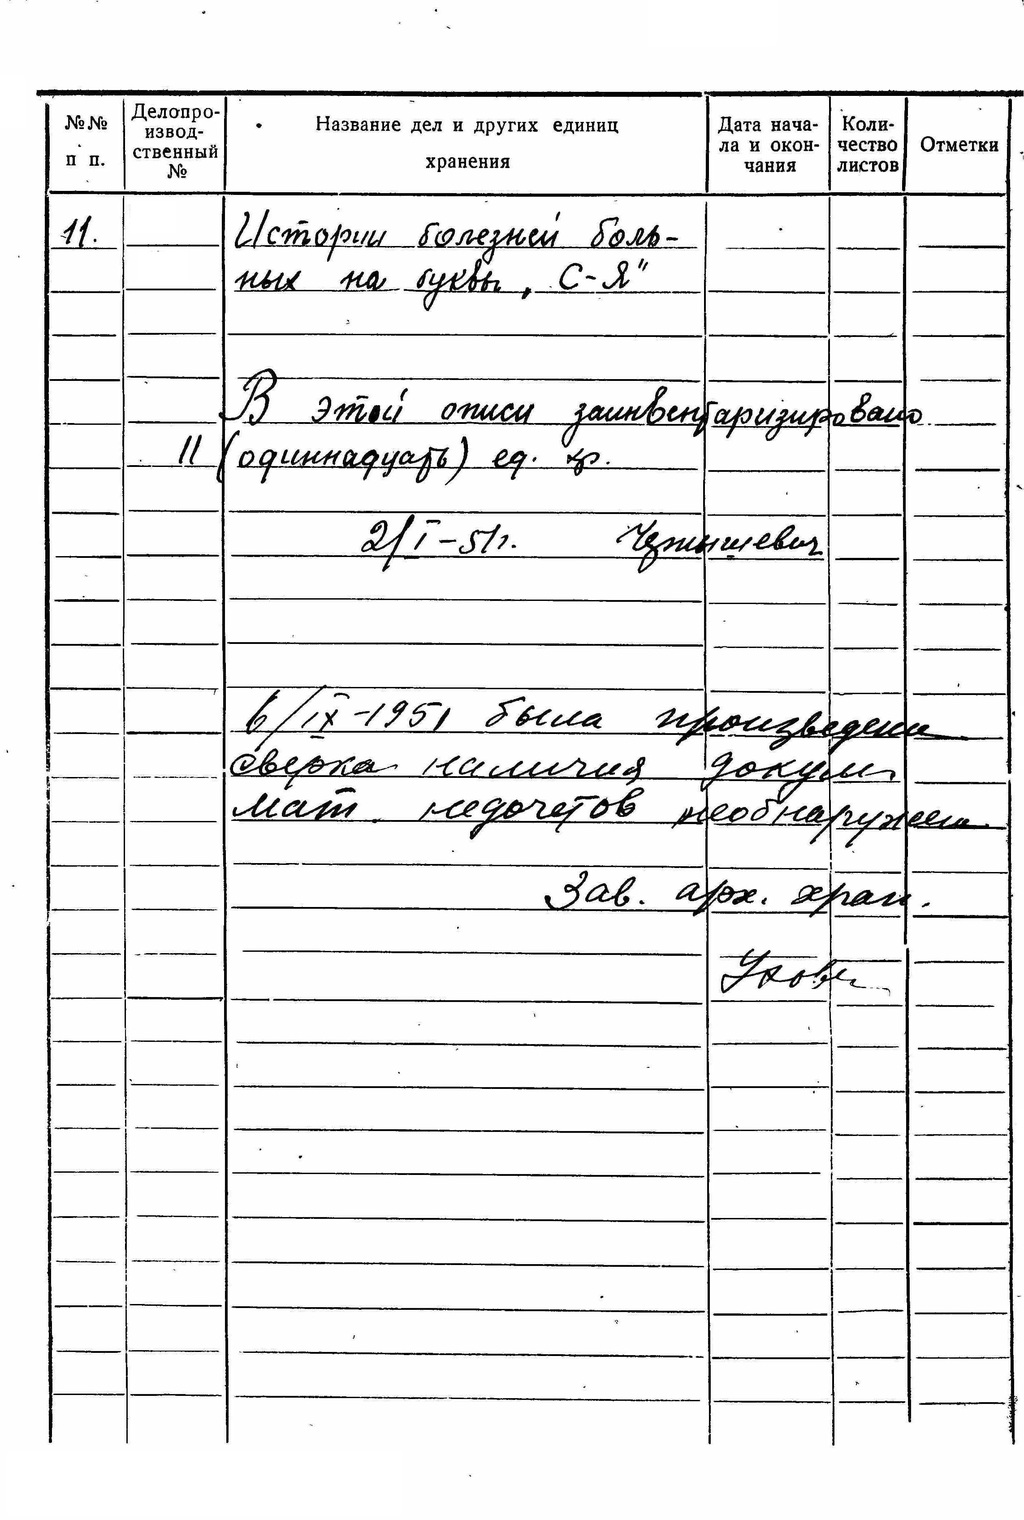 №№ п п.
Делопроизводственный №
Название дел и других единиц хранения
Дата начала и окончания
Количество листов
Отметки
11. Истории болезней боль-
ных на буквы „С-Я"
В этой описи заинвентаризировано
11 (одиннадцать) ед. хр.
2/I-51г.
6/IX-1951 была произведена
сверка наличия докум
мат. недочетов необнаружено
Зав. арх. хран.